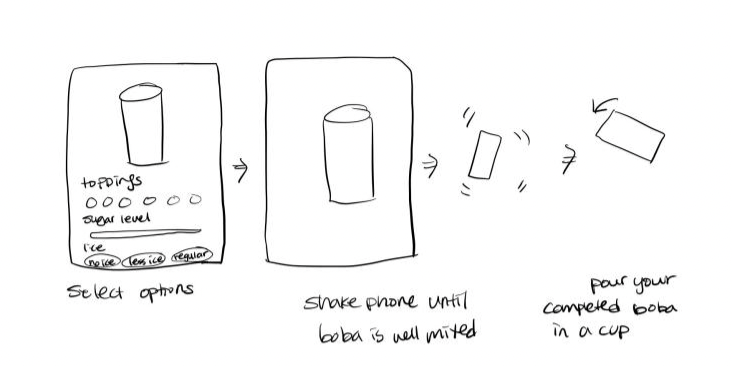 toppings
sugar level
ice
no ice less ice regular
select options
shake phone until
boba is well mixed
pour your
completed boba
in a cup